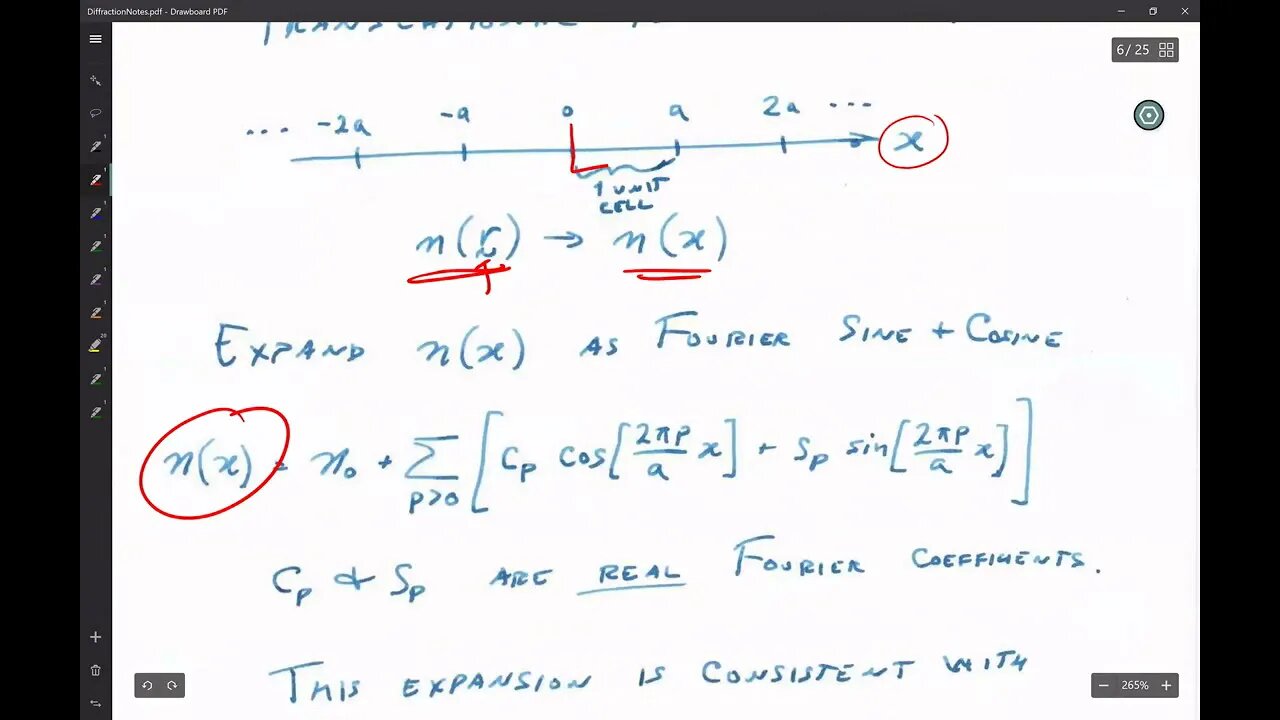 DiffractionNotes.pdf - Drawboard PDF
6 / 25
... -2a -a 0 a 2a ... x
1 UNIT
CELL
n(r) → n(x)
EXPAND n(x) AS FOURIER SINE + COSINE
n(x) = n₀ + ∑ p>0 [ Cp cos[2πp/a x] + Sp sin[2πp/a x] ]
Cp & Sp ARE REAL FOURIER COEFFICIENTS.
THIS EXPANSION IS CONSISTENT WITH
265%